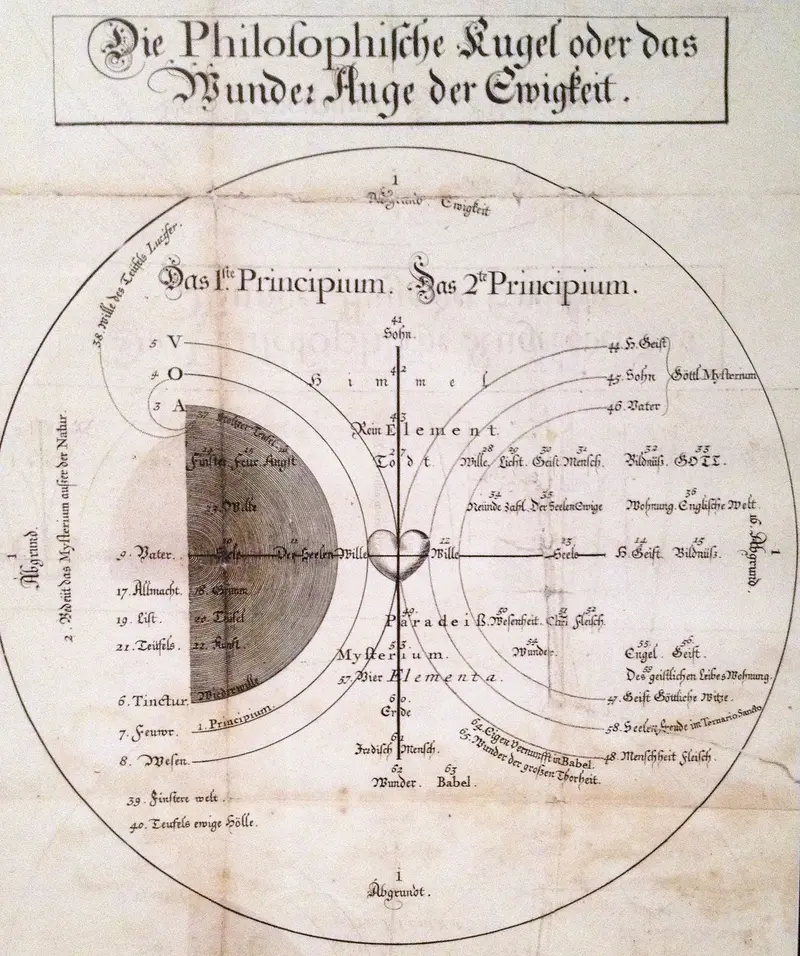 Die Philosophische Kugel oder das
Wunder Auge der Ewigkeit.
1
Abgrund. Ewigkeit
38. Wille des Teüfels Lucifer.
Das 1ste Principium. Das 2te Principium.
41
Sohn.
5 V
44 H. Geist
4 O
42
Himmel
45. Sohn
Göttl. Mysterium
3 A
46. Vater
43
Rein Element.
37.
24 25 26
Finster Feür Angst
27
Todt.
28 29 30 31
Wille. Licht. Geist Mensch.
32 33
Bildnüß. GOTT.
23. Wille
34 35
Der Seelen Ewige
36
Wohnung. Englische Welt.
1
Abgrund.
2. Bedeüt das Mysterium außer der Natur.
9. Vater.
10
Seele
11
Der Seelen Wille
12
Wille
13.
Seele
14 15
H. Geist. Bildnüß.
1
Abgrund.
17. Allmacht. 18. Grimm
19. List. 20. Teüfel
21. Teüfels. 22. Kunst.
49.
Paradeiß.
50 51 52
Wesenheit. Christi Fleisch.
53.
Mysterium.
54
Wunder.
55 56
Engel. Geist.
57. Vier Elementa.
59
Des geistlichen Leibes Wohnung.
6. Tinctur.
Wiederwille
47. Geist Göttliche Witze.
60.
Erde
7. Feuwr.
1. Principium.
58. Seelen Freüde im Ternario Sancto
61
Irdisch Mensch.
64. Eigen Vernunfft in Babel.
65. Wunder der großen Thorheit.
8. Wesen.
48. Menschheit Fleisch.
62 63
Wunder. Babel.
39. Finstere welt.
40. Teüfels ewige Hölle.
1
Abgrundt.